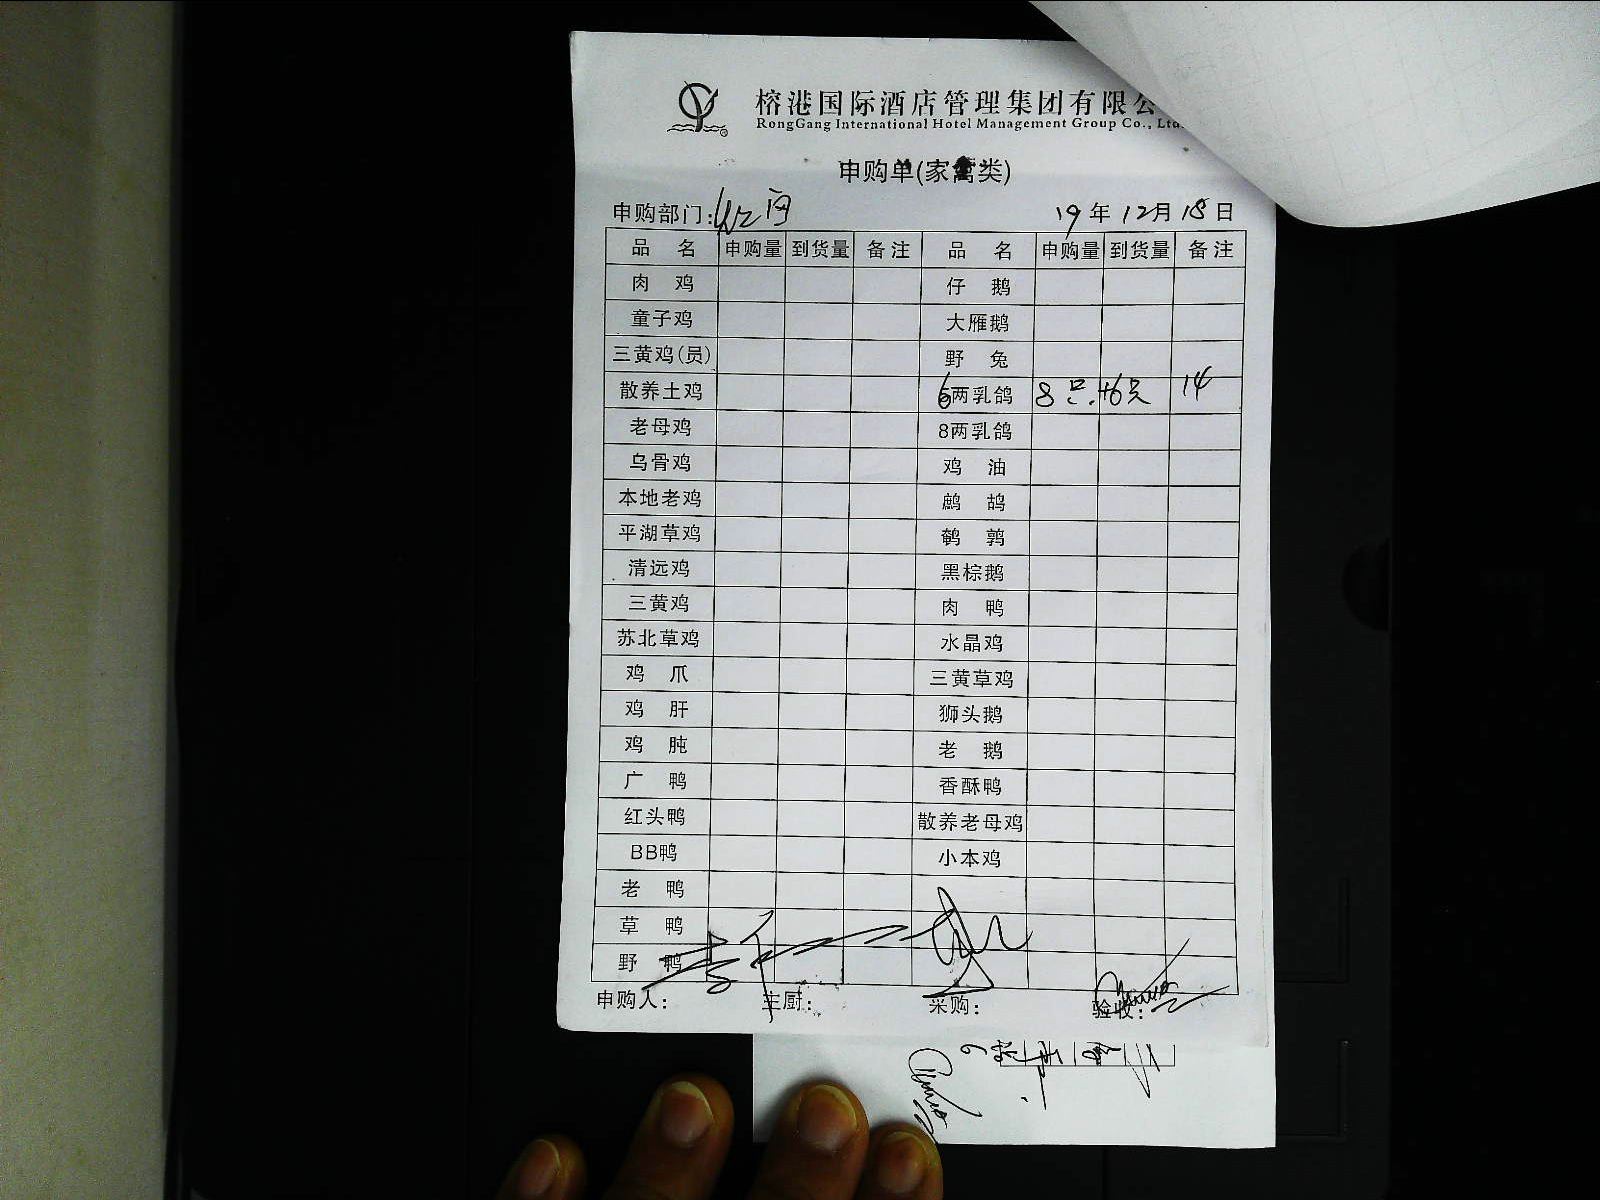 榕港国际酒店管理集团有限公
RongGang International Hotel Management Group Co., Ltd.
申购单(家禽类)
申购部门: 19年12月18日
品 名 申购量 到货量 备注 品 名 申购量 到货量 备注
肉 鸡 仔 鹅
童子鸡 大雁鹅
三黄鸡(员) 野 兔
散养土鸡 6两乳鸽 8只 +6只 14
老母鸡 8两乳鸽
乌骨鸡 鸡 油
本地老鸡 鹧 鸪
平湖草鸡 鹌 鹑
清远鸡 黑棕鹅
三黄鸡 肉 鸭
苏北草鸡 水晶鸡
鸡 爪 三黄草鸡
鸡 肝 狮头鹅
鸡 肫 老 鹅
广 鸭 香酥鸭
红头鸭 散养老母鸡
BB鸭 小本鸡
老 鸭
草 鸭
野 鸭
申购人: 主厨: 采购: 验收: